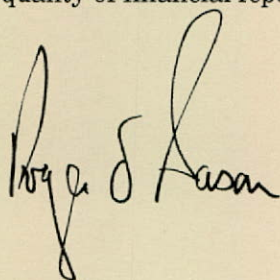 quality of financial rep
Roger S Sason